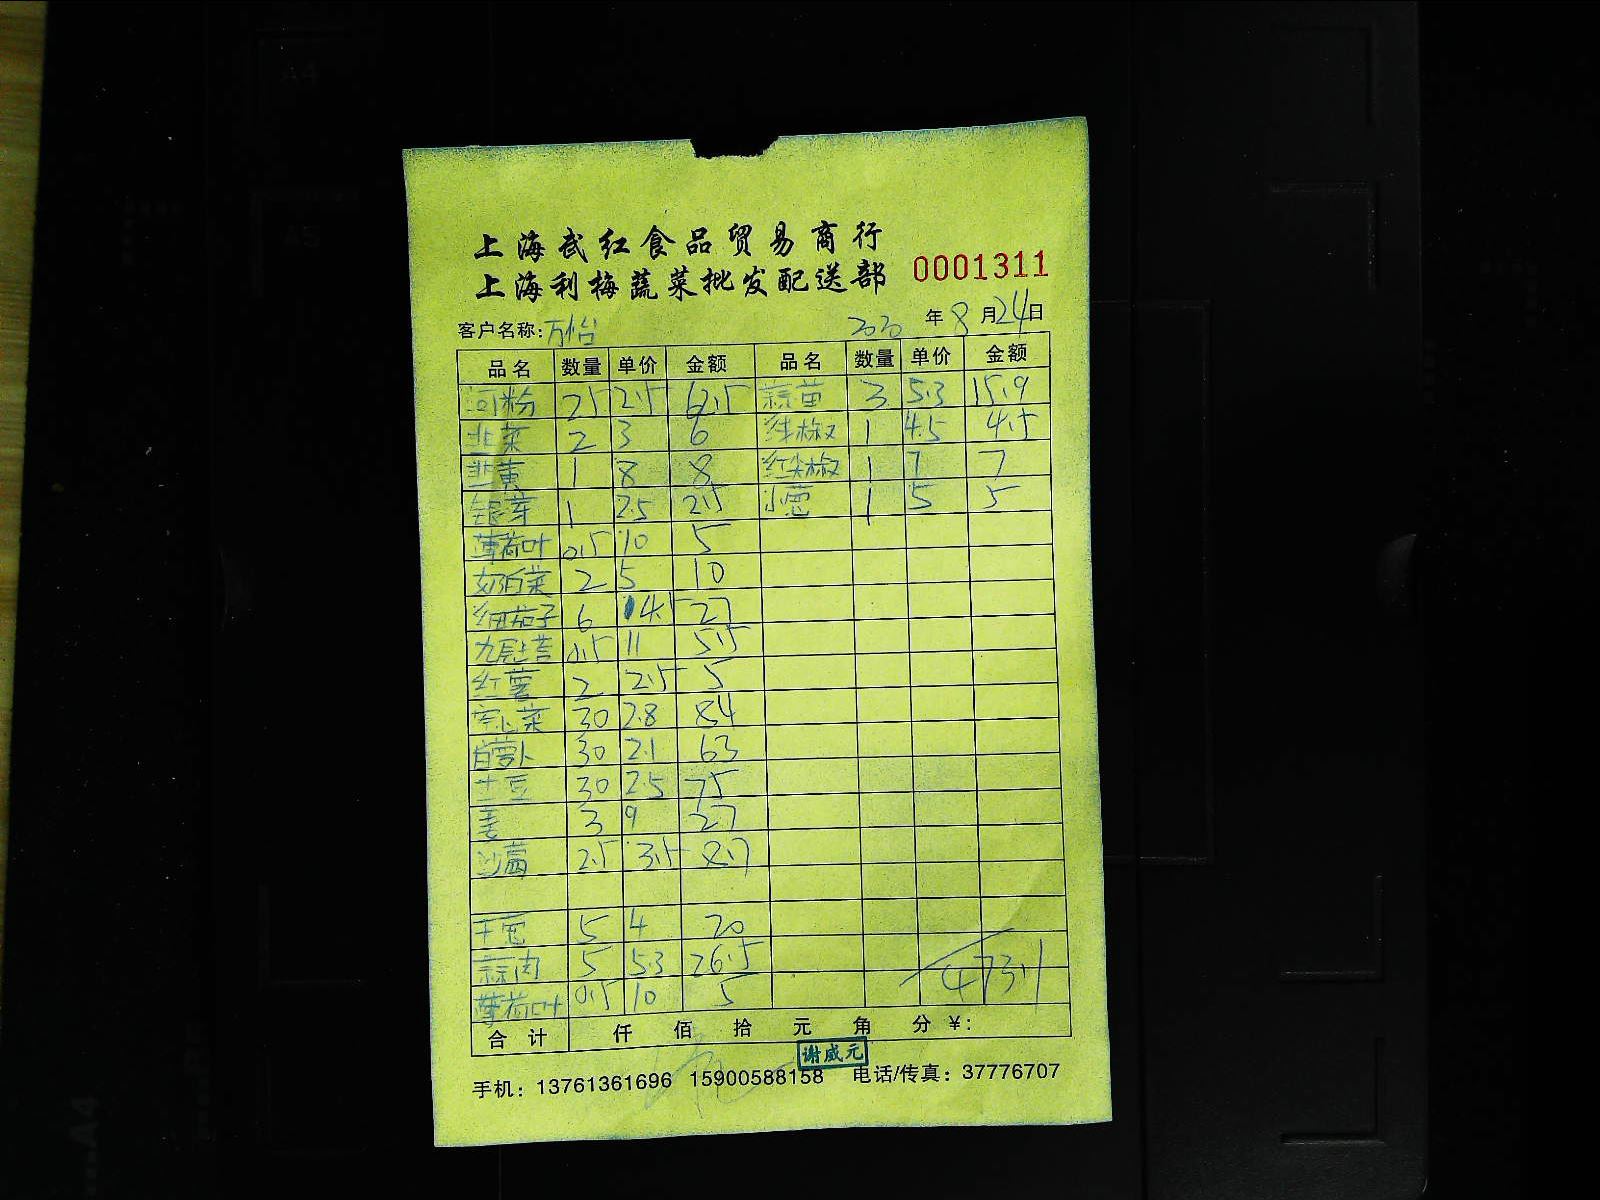 上海武红食品贸易商行
上海利梅蔬菜批发配送部 0001311
客户名称:万怡 2020 年 8 月 24 日
品名 数量 单价 金额 品名 数量 单价 金额
河粉 25 2.5 62.5 蒜苗 3 5.3 15.9
韭菜 2 3 6 洋椒 1 4.5 4.5
韭黄 1 8 8 红尖椒 1 7 7
银芽 1 2.5 2.5 小葱 1 5 5
薄荷叶 0.5 10 5
奶白菜 2 5 10
细茄子 6 4.5 27
九层塔 0.5 11 5.5
红薯 2 2.5 5
空心菜 30 2.8 84
白萝卜 30 2.1 63
土豆 30 2.5 75
姜 3 9 27
沙葛 2.5 3.5 8.7
干葱 5 4 20
蒜肉 5 5.3 26.5
薄荷叶 0.5 10 5
473.1
合计 仟 佰 拾 元 角 分 ¥:
谢威元
手机: 13761361696 15900588158 电话/传真: 37776707